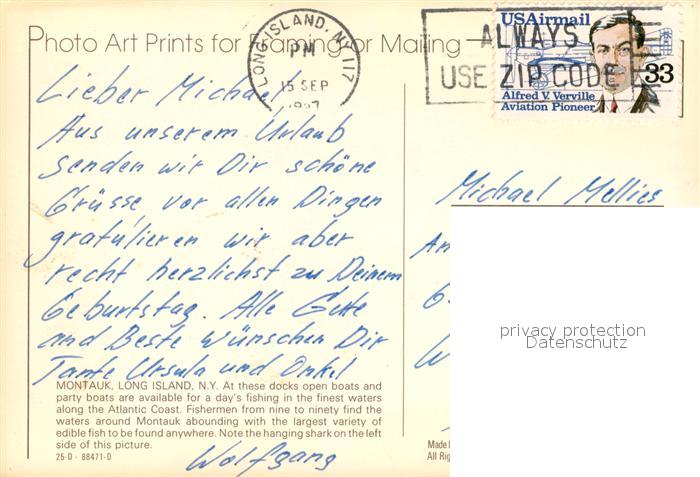 Photo Art Prints for Framing or Mailing
LONG ISLAND, NY 117
PM
15 SEP
1987
ALWAYS
USE ZIP CODE
USAirmail
33
Alfred V. Verville
Aviation Pioneer
Lieber Michael,
Aus unserem Urlaub
senden wir Dir schöne
Grüsse vor allen Dingen
gratulieren wir aber
recht herzlichst zu Deinem
Geburtstag. Alle Gute
und Beste wünschen Dir
Tante Ursula und Onkel
Wolfgang
Michael Mellies
An
G
W
privacy protection
Datenschutz
MONTAUK, LONG ISLAND, N.Y. At these docks open boats and
party boats are available for a day's fishing in the finest waters
along the Atlantic Coast. Fishermen from nine to ninety find the
waters around Montauk abounding with the largest variety of
edible fish to be found anywhere. Note the hanging shark on the left
side of this picture.
25-D - 88471-D
Made
All Rig